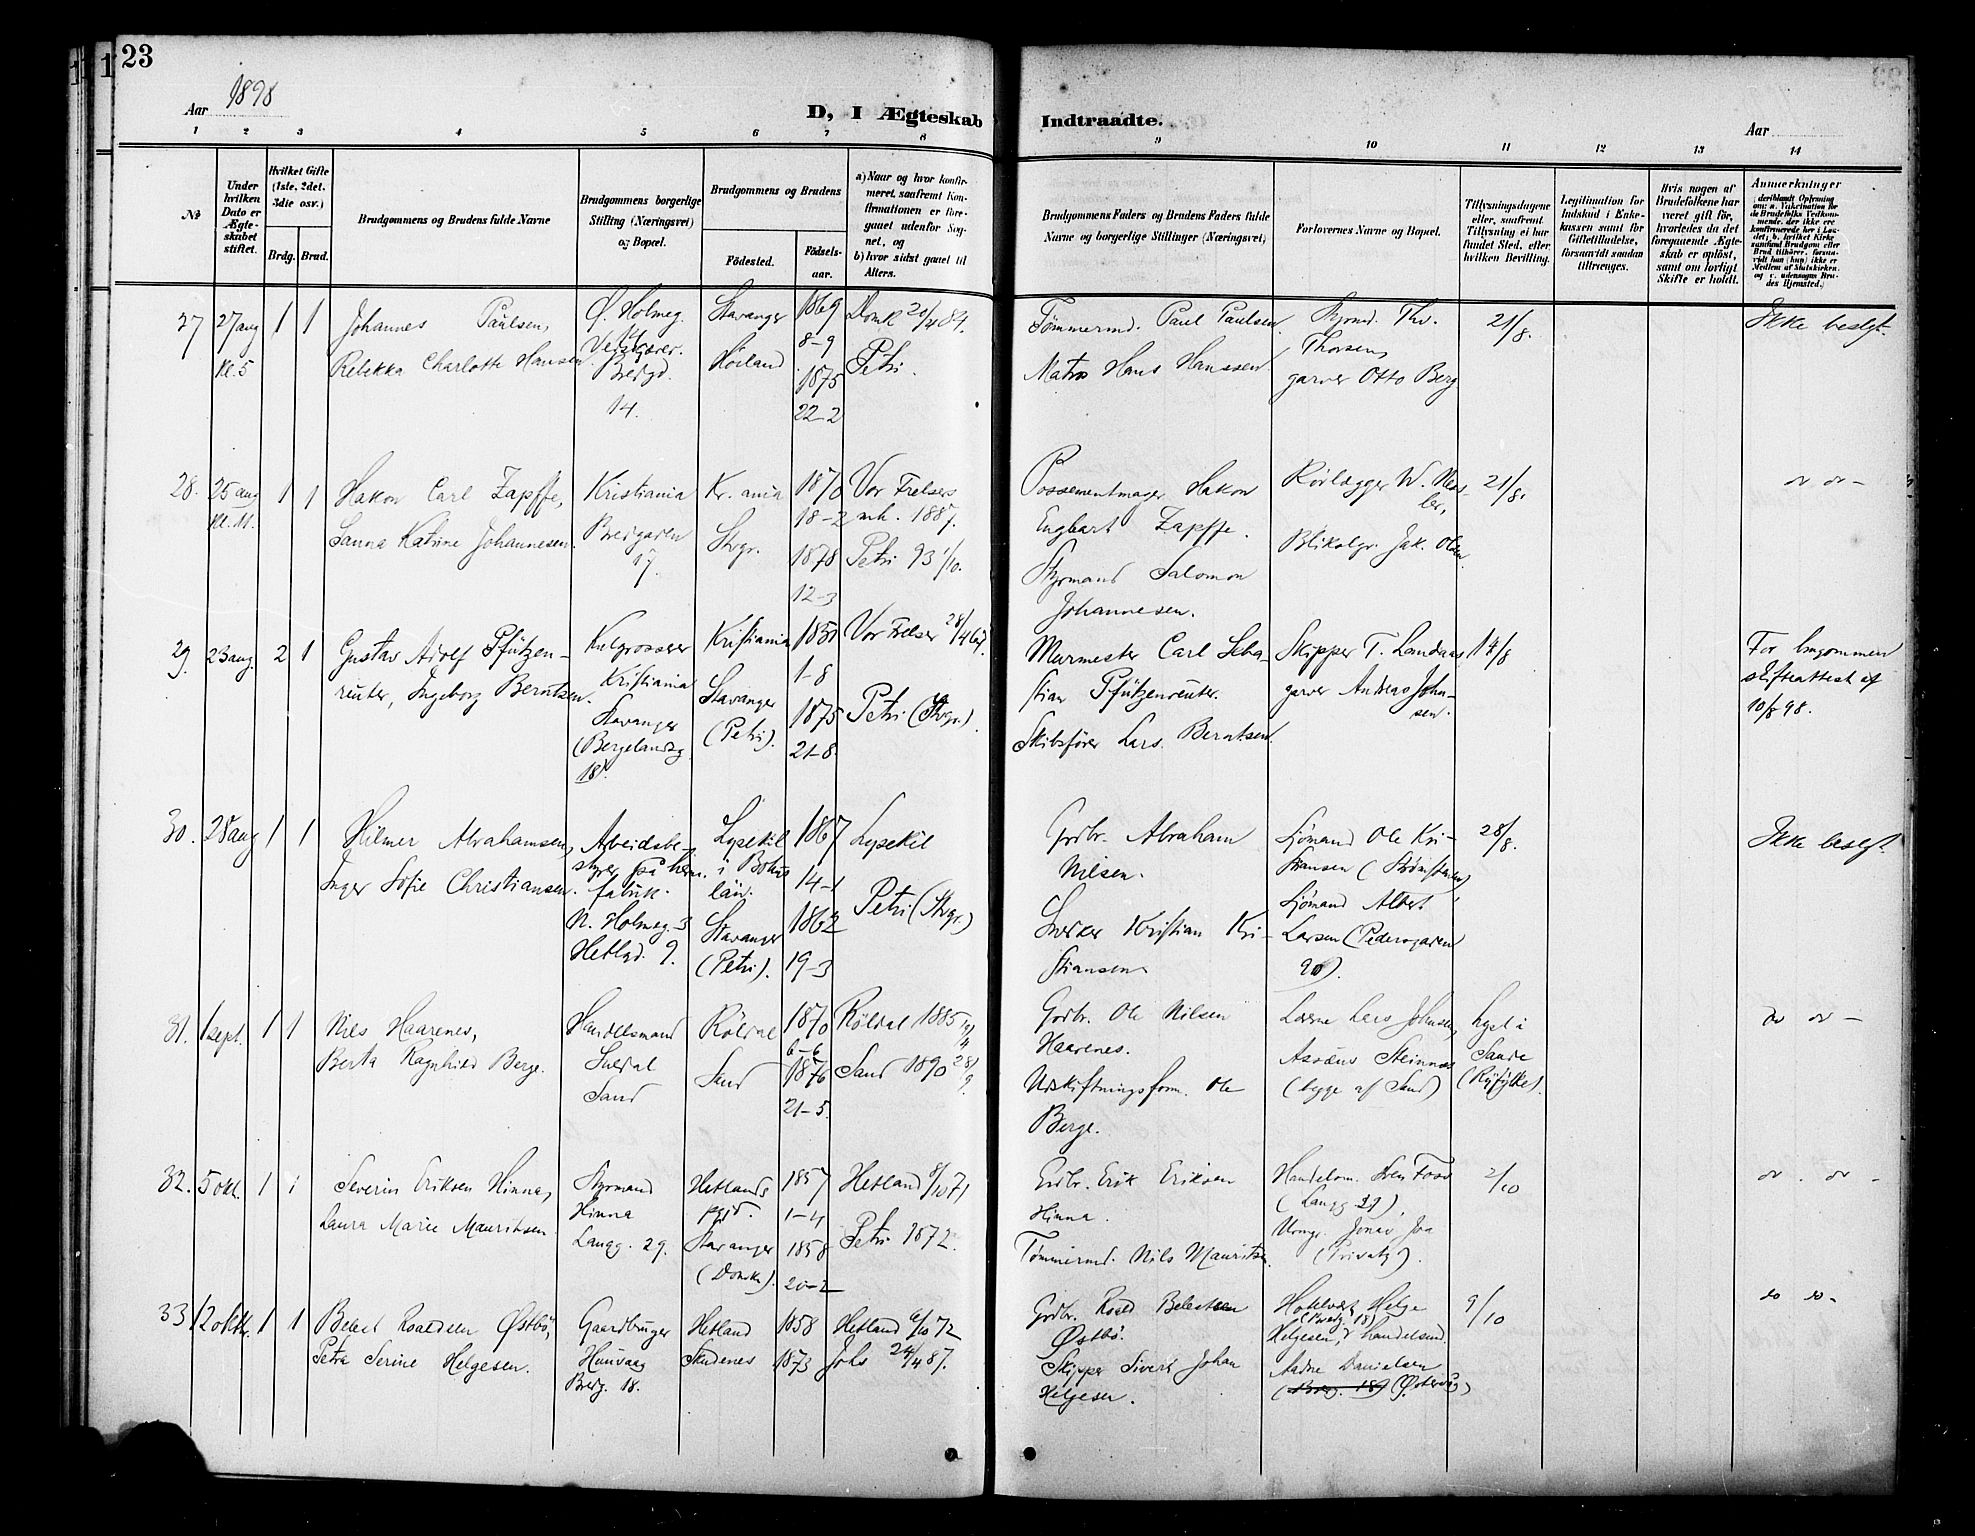 23
Aar 1898
D, I Ægteskab Indtraadte.
Aar
1 2 3 4 5 6 7 8 9 10 11 12 13 14
No
Under hvilken Dato er Ægteskabet stiftet.
Hvilket Gifte (1ste, 2det, 3die osv.)
Brdg. Brud.
Brudgommens og Brudens fulde Navne
Brudgommens borgerlige Stilling (Næringsvei) og Bopæl.
Brudgommens og Brudens
Fødested. Fødsels-aar.
a) Naar og hvor konfirmeret, saafremt Konfirmationen er foregaaet udenfor Sognet, og
b) hvor sidst gaaet til Alters.
Brudgommens Faders og Brudens Faders fulde Navne og borgerlige Stillinger (Næringsvei)
Forlovernes Navne og Bopæl.
Tillysningsdagene eller, saafremt Tillysning ei har fundet Sted, efter hvilken Bevilling.
Legitimation for Indskud i Enkekassen samt for Giftetilladelse, forsaavidt saadan tiltrænges.
Hvis nogen af Brudefolkene har været gift før, hvorledes da det foregaaende Ægteskab er opløst, samt om lovligt Skifte er holdt.
Anmærkninger
27 27 aug Kl. 5 1 1
Johannes Paulsen,
Rebekka Charlotte Hansen
Ø. Holmeg.
Bredgd.
14.
Stavanger 1869 8-9
Høiland 1875 22-2
Domk 20/4 84.
Petri.
Tømmermd. Paul Paulsen
Matros Hans Hanssen
Styrmd. Thv.
Thorsen,
garver Otto Berg
21/8.
Ikke beslgt.
28. 25 aug Kl. 11. 1 1
Hakon Carl Zapffe,
Sanna Katrine Johannesen.
Kristiania
Bredgaden
17.
Kr.ania 1870 18-2
Stvgr. 1878 12-3
Vor Frelsers
mh. 1887.
Petri 93 1/10.
Possementmager Hakon
Engbart Zapffe.
Styrmand Salomon
Johannesen.
Rørlægger W. Ness-
ler,
Blikslgr. Jak. Olsen
21/8.
do do -
29. 23 aug. 2 1
Gustav Adolf Pfützen-
reuter, Ingeborg Berntsen.
Kulgrosserer
Kristiania
Stavanger
(Bergelandsg
18).
Kristiania 1851 1-8
Stavanger (Petri). 1875 21-8
Vor Frelser 28/4
Petri (Stvgr.)
Murmester Carl Seba-
stian Pfützenreuter.
Skibsfører Lars Berntsen.
Skipper T. Landaas
garver Andreas John-
sen.
14/8
For brudgommen
skifteattest af
10/8 98.
30. 28 aug 1 1
Hilmer Abrahamsen,
Inger Sofie Christiansen.
Arbeidsbe-
styrer på herm.
fabrik.
N. Holmeg. 3
Hetlgd. 9.
Lysekil
i Bohus
län. 1867 14-1
Stavanger
(Petri). 1862 19-3
Lysekil
Petri (Stvgr.)
Grdbr. Abraham
Nilsen.
Snekker Kristian Kri-
stiansen
Sjømand Ole Kri-
stiansen (Strømstenen)
Sjømand Albert
Larsen (Pedersgaden
90).
28/8.
Ikke beslgt.
31. 1 sept. 1 1
Nils Haarenes,
Berta Ragnhild Berge.
Handelsmand
Suldal
Sand
Røldal 1870 6-6
Sand 1876 21-5.
Røldal 1885
Sand 1890 28/9.
Grdbr. Ole Nilsen
Haarenes.
Udskiftningsform. Ole
Berge.
Lærer Lars Johnsen,
Asgaus Steinnes
(begge af Sand)
Lyst i
Sande
(Ryfylke).
do do -
32. 5 okt. 1 1
Severin Eriksen Hinna,
Laura Marie Mauritsen
Styrmand
Hinna
Langg. 29.
Hetlands
pgjd. 1857 1-4
Stavanger
(Domk). 1858 20-2
Hetland 8/10 71
Petri 1872.
Grdbr. Erik Eriksen
Hinna.
Tømmermd. Nils Mauritsen
Handelsm. Sven Foss
(Langg 29),
Urmgr. Jonas Joa
(Privatg).
2/10
do. do -
33 12 oktbr. 1 1
Berent Roaldsen Østbø,
Petra Serine Helgesen.
Gaardbruger
Hunvaag
Bredg. 18.
Hetland 1858
Skudenes 1873
Hetland 6/10 72
Johs 24/4 87.
Grdbr. Roald Berentsen
Østbø.
Skipper Sivert Johan
Helgesen.
Hotelvært Helge
Helgesen, Handelsmd.
Aadne Danielsen
(Østervåg)
9/10
do do -